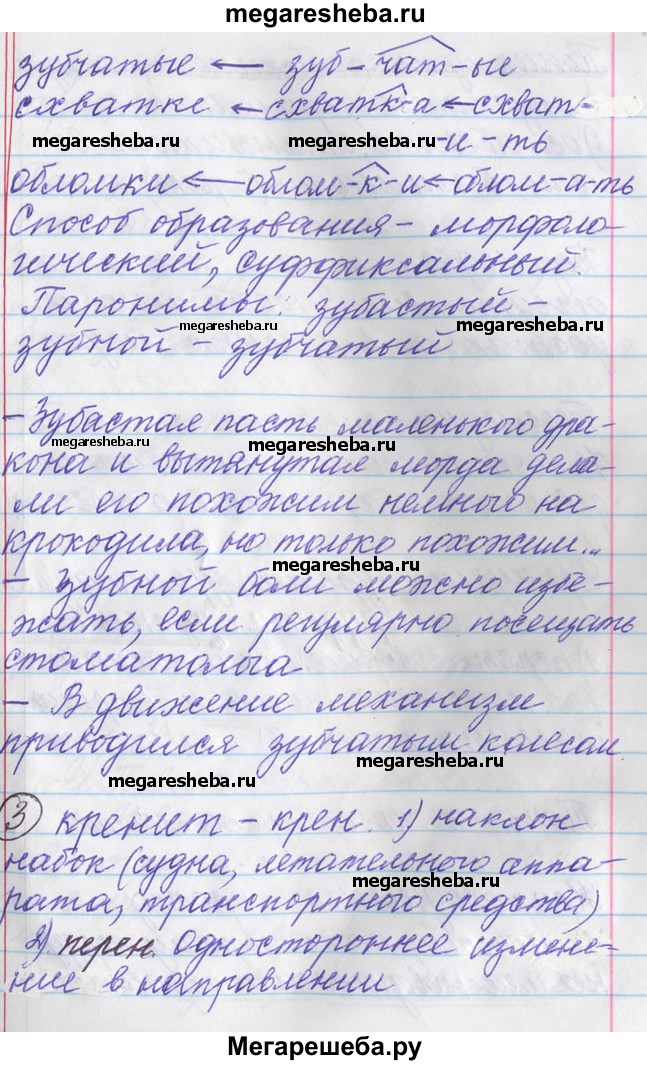 megaresheba.ru
зубчатые ← зуб-чат-ые
схватке ← схватк-а ← схват-
megaresheba.ru megaresheba.ru
-и-ть
обломки ← облом-к-и ← облом-а-ть
Способ образования - морфоло-
гический, суффиксальный.
Паронимы: зубастый -
megaresheba.ru megaresheba.ru
зубной - зубчатый
- Зубастая пасть маленького дра-
megaresheba.ru megaresheba.ru
кона и вытянутая морда дела-
ли его похожим немного на
крокодила, но только похожим...
megaresheba.ru megaresheba.ru
- Зубной боли можно избе-
жать, если регулярно посещать
стоматолога
- В движение механизм
приводился зубчатым колесом.
megaresheba.ru megaresheba.ru
3 кренит - крен. 1) наклон
набок (судна, летательного аппа-
megaresheba.ru
рата, транспортного средства)
2) перен. одностороннее измене-
megaresheba.ru
ние в направлении
Мегарешеба.ру